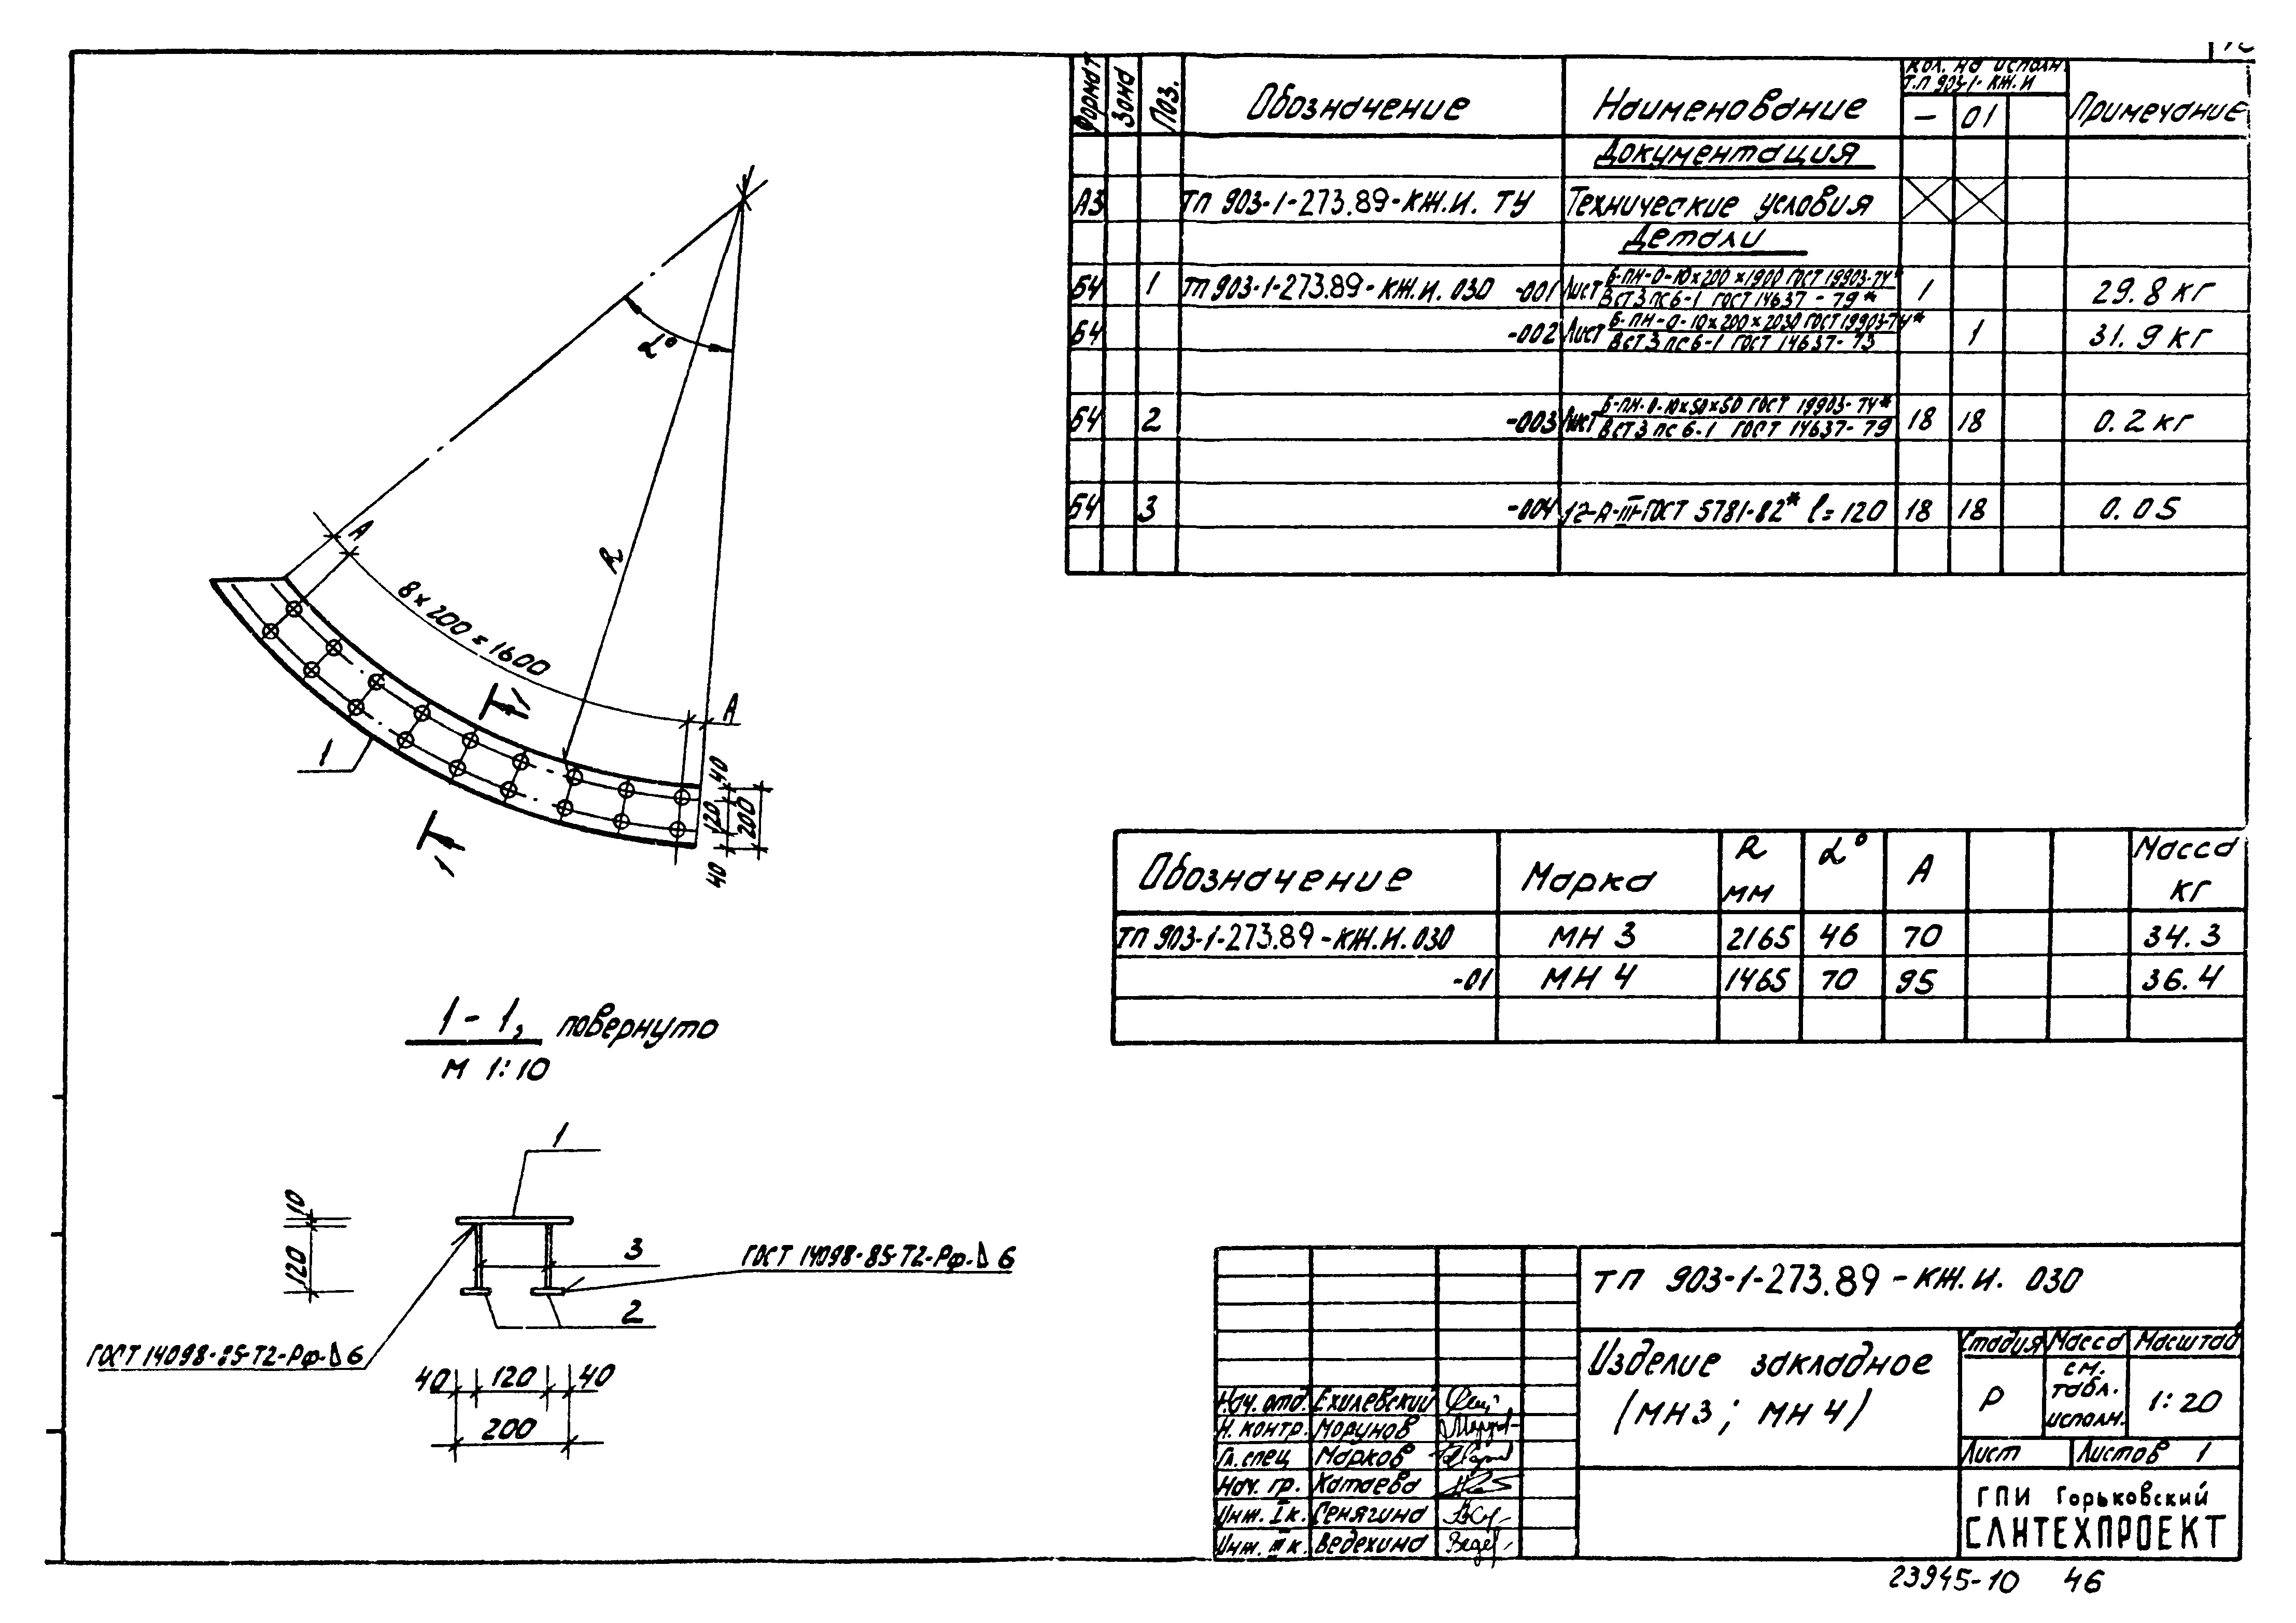 Формат Зона Поз. Обозначение Наименование Кол. на исполн. Т.П 903-1- КЖ.И Примечание
– 01
Документация
А3 ТП 903-1-273.89-КЖ.И. ТУ Технические условия
Детали
Б4 1 ТП 903-1-273.89-КЖ.И. 030 -001 Лист Б-ПН-О-10х200х1900 ГОСТ 19903-74* 1 29.8 кг
ВСт3 пс 6-1 ГОСТ 14637-79*
Б4 -002 Лист Б-ПН-О-10х200х2030 ГОСТ 19903-74* 1 31.9 кг
ВСт3 пс 6-1 ГОСТ 14637-73
Б4 2 -003 Лист Б-ПН-О-10х50х50 ГОСТ 19903-74* 18 18 0.2 кг
ВСт3 пс 6-1 ГОСТ 14637-79
Б4 3 -004 12-А-III-ГОСТ 5781-82* ℓ=120 18 18 0.05
α°
А
R
8х200=1600
А
1
1
1
40
120
200
40
Обозначение Марка R мм α° А Масса кг
ТП 903-1-273.89-КЖ.И.030 МН 3 2165 46 70 34.3
-01 МН 4 1465 70 95 36.4
1-1, повернуто
М 1:10
1
10
120
3
ГОСТ 14098-85-Т2-Рф-Δ6
2
ГОСТ 14098-85-Т2-Рф-Δ6
40 120 40
200
ТП 903-1-273.89-КЖ.И. 030
Изделие закладное
(МН3; МН4)
Стадия Масса Масштаб
Р см. табл. исполн. 1:20
Лист Листов 1
Нач. отд. Ехилевский
Н. контр. Морунов
Гл. спец Марков
Нач. гр. Катаева
Инж. I к. Сенягина
Инж. III к. Ведехина
ГПИ Горьковский
САНТЕХПРОЕКТ
23945-10 46